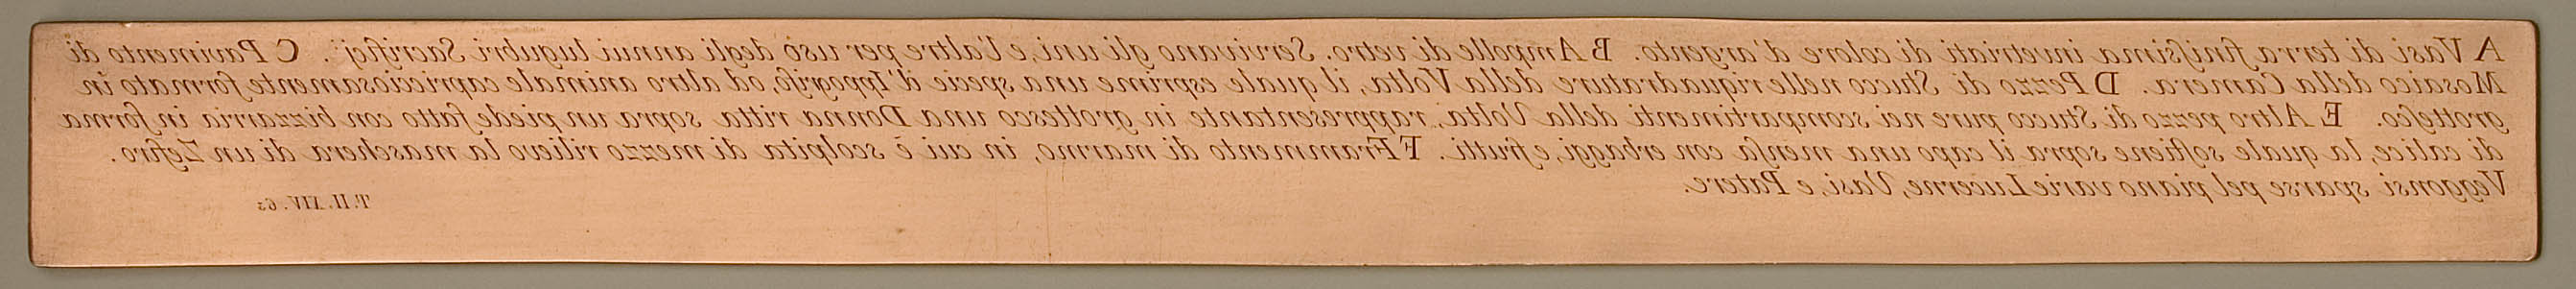 A Vasi di terra finiſsima invetriati di colore d'argento. B Ampolle di vetro. Servivano gli uni, e l'altre per uso degli annui lugubri Sacrifizj. C Pavimento di
Mosaico della Camera. D Pezzo di Stucco nelle riquadrature della Volta, il quale esprime una specie d'Ippogrifo, od altro animale capricciosamente formato in
grotteſco. E Altro pezzo di Stucco pure nei scompartimenti della Volta, rappresentante in grottesco una Donna ritta sopra un piede fatto con bizzarria in forma
di calice, la quale soſtiene sopra il capo una menſa con erbaggi, e frutti. F Frammento di marmo, in cui è scolpita di mezzo rilievo la maschera di un Zefiro.
Veggonsi sparse pel piano varie Lucerne, Vasi, e Patere.
T. II. XIV. 63